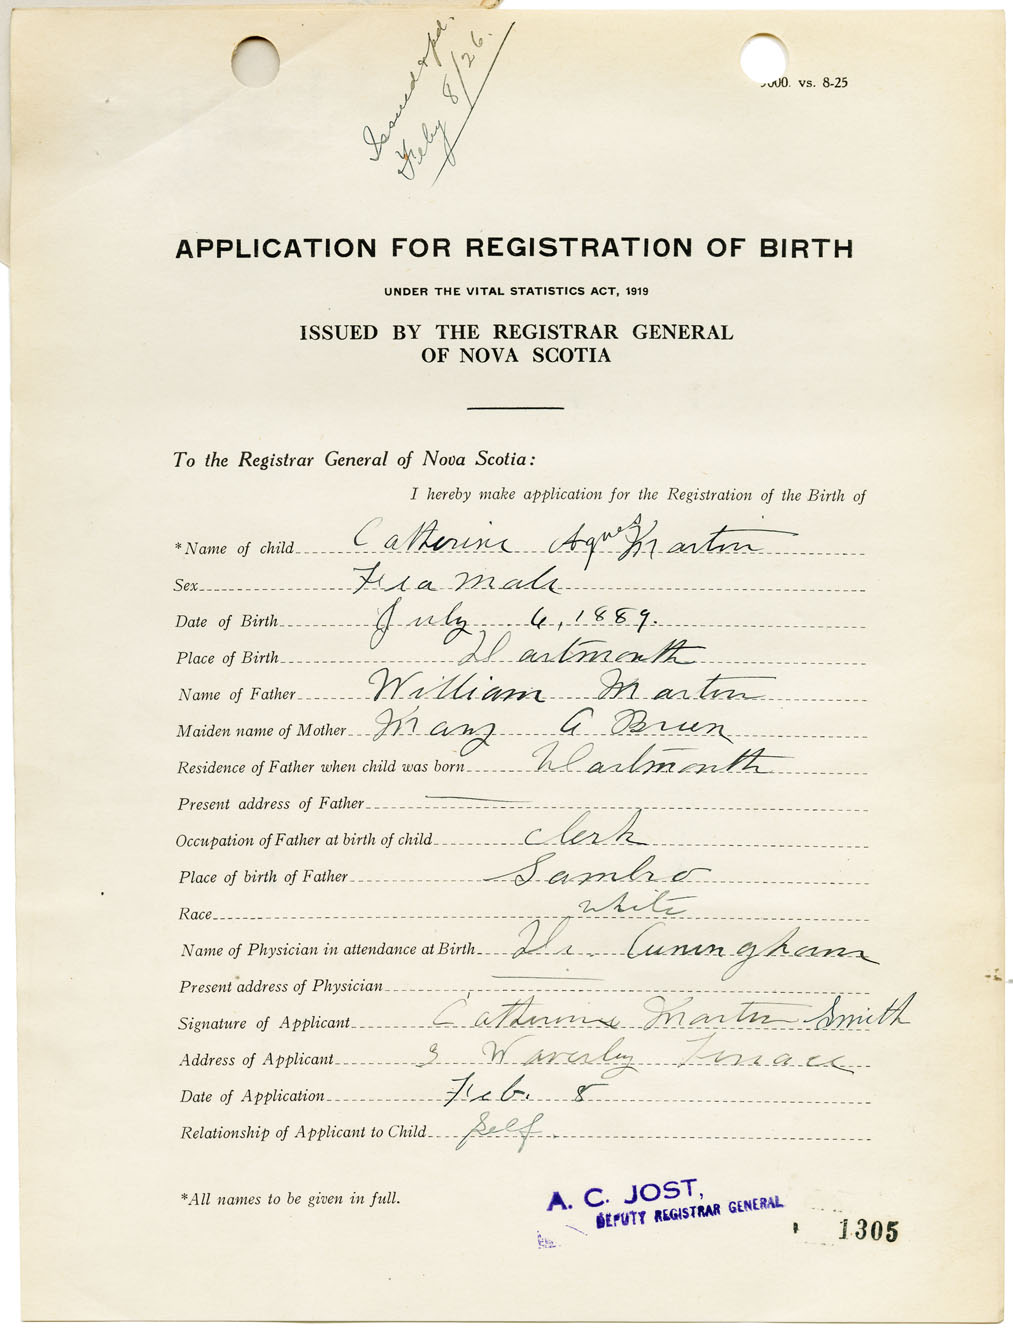 Issued & pd.
Feby 8/26.
000. vs. 8-25
APPLICATION FOR REGISTRATION OF BIRTH
UNDER THE VITAL STATISTICS ACT, 1919
ISSUED BY THE REGISTRAR GENERAL
OF NOVA SCOTIA
To the Registrar General of Nova Scotia:
I hereby make application for the Registration of the Birth of
*Name of child Catherine Agnes Martin
Sex Feamale
Date of Birth July 6, 1889.
Place of Birth Dartmouth
Name of Father William Martin
Maiden name of Mother Mary A Brien
Residence of Father when child was born Dartmouth
Present address of Father —
Occupation of Father at birth of child clerk
Place of birth of Father Sambro
Race white
Name of Physician in attendance at Birth Dr. Cuningham
Present address of Physician —
Signature of Applicant Catherine Martin Smith
Address of Applicant 3 Waverley Terrace
Date of Application Feb. 8
Relationship of Applicant to Child Self.
*All names to be given in full.
A. C. JOST,
DEPUTY REGISTRAR GENERAL
1305